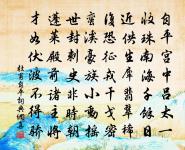 自平宮中呂太一
收珠南海千餘日
近供生犀翡翠稀
復恐征戎干戈密
蠻溪豪族小動搖
世封刺史非時朝
蓬萊殿前諸主將
才如伏波不得驕
杜甫自平詞典網